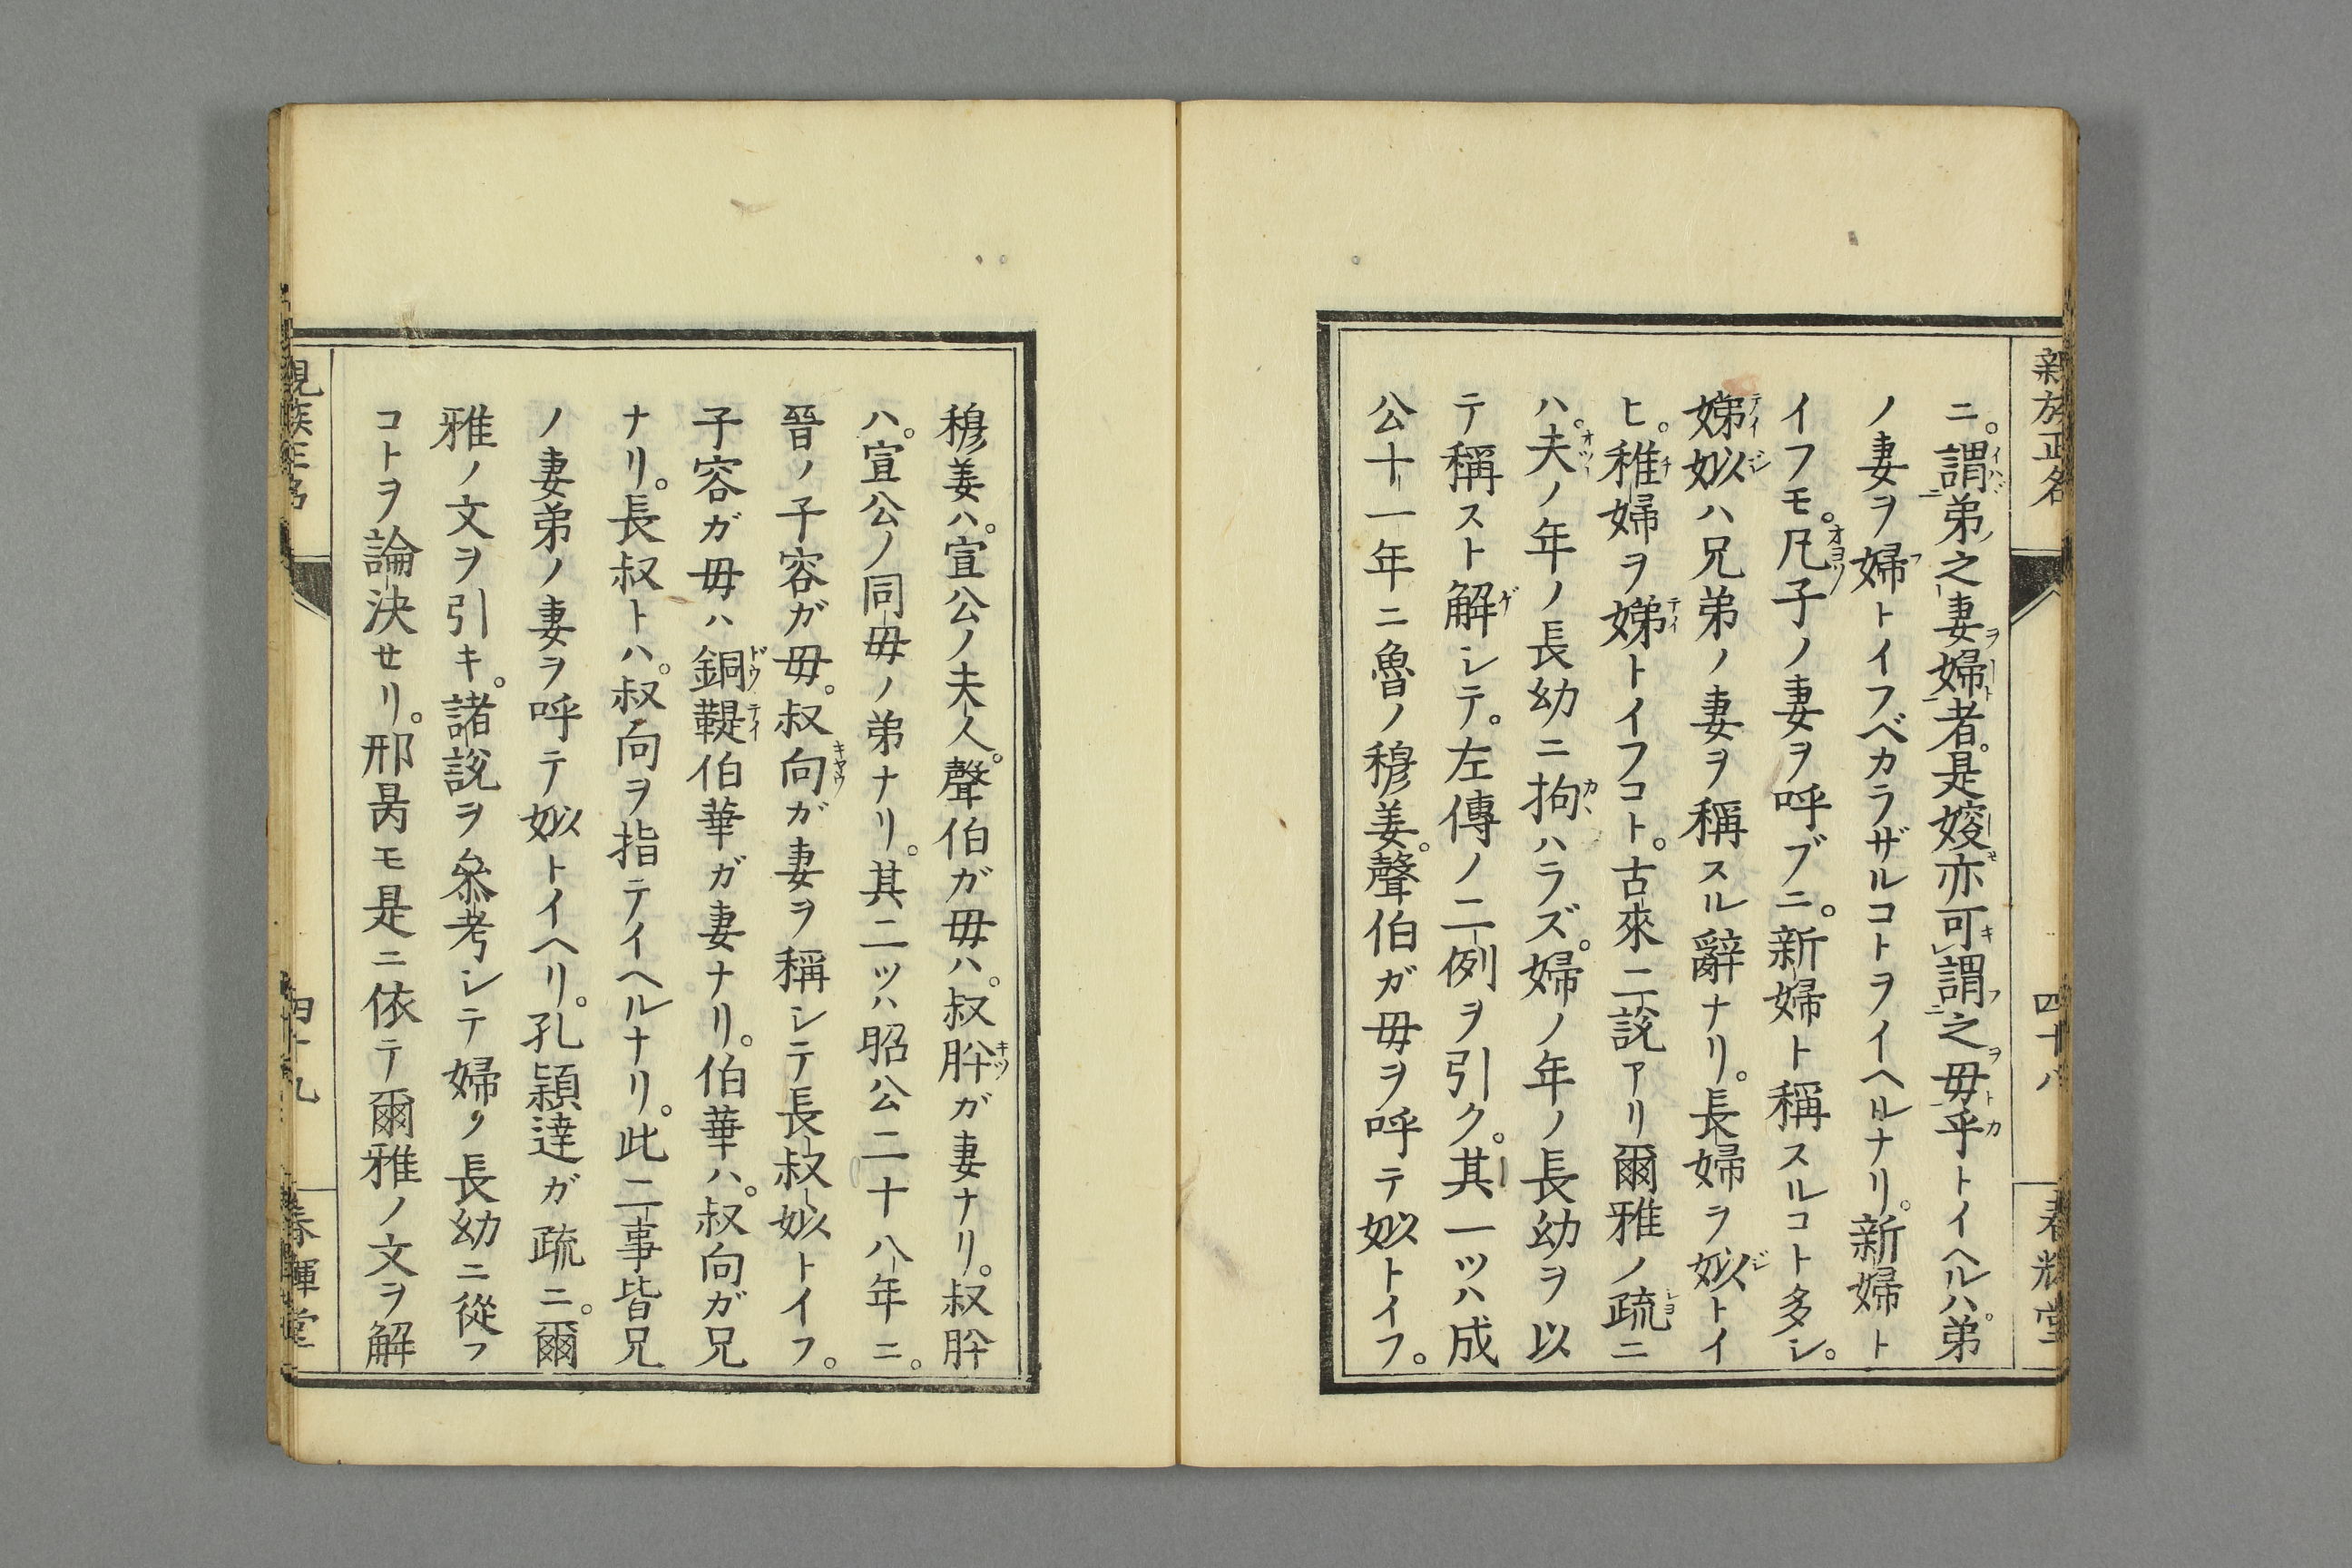 親族正名 四十八 春輝堂
ニ。謂弟之妻婦者。是嫂亦可謂之毋乎トイヘルハ。弟
ノ妻ヲ婦トイフベカラザルコトヲイヘルナリ。新婦ト
イフモ。凡子ノ妻ヲ呼ブニ。新婦ト稱スルコト多シ。
娣姒ハ兄弟ノ妻ヲ稱スル辭ナリ。長婦ヲ姒トイ
ヒ。稚婦ヲ娣トイフコト。古來二說アリ爾雅ノ疏ニ
ハ。夫ノ年ノ長幼ニ拘ハラズ。婦ノ年ノ長幼ヲ以
テ稱スト解シテ。左傳ノ二例ヲ引ク。其一ツハ成
公十一年ニ魯ノ穆姜。聲伯ガ毋ヲ呼テ姒トイフ。
穆姜ハ。宣公ノ夫人。聲伯ガ毋ハ。叔肸ガ妻ナリ。叔肸
ハ。宣公ノ同毋ノ弟ナリ。其二ツハ昭公二十八年ニ。
晉ノ子容ガ毋。叔向ガ妻ヲ稱シテ長叔姒トイフ。
子容ガ毋ハ銅鞮伯華ガ妻ナリ。伯華ハ。叔向ガ兄
ナリ。長叔トハ。叔向ヲ指テイヘルナリ。此二事皆兄
ノ妻弟ノ妻ヲ呼テ姒トイヘリ。孔穎達ガ疏ニ。爾
雅ノ文ヲ引キ。諸說ヲ參考シテ婦ノ長幼ニ從フ
コトヲ論決セリ。邢昺モ是ニ依テ爾雅ノ文ヲ解
親族正名 四十九 春輝堂